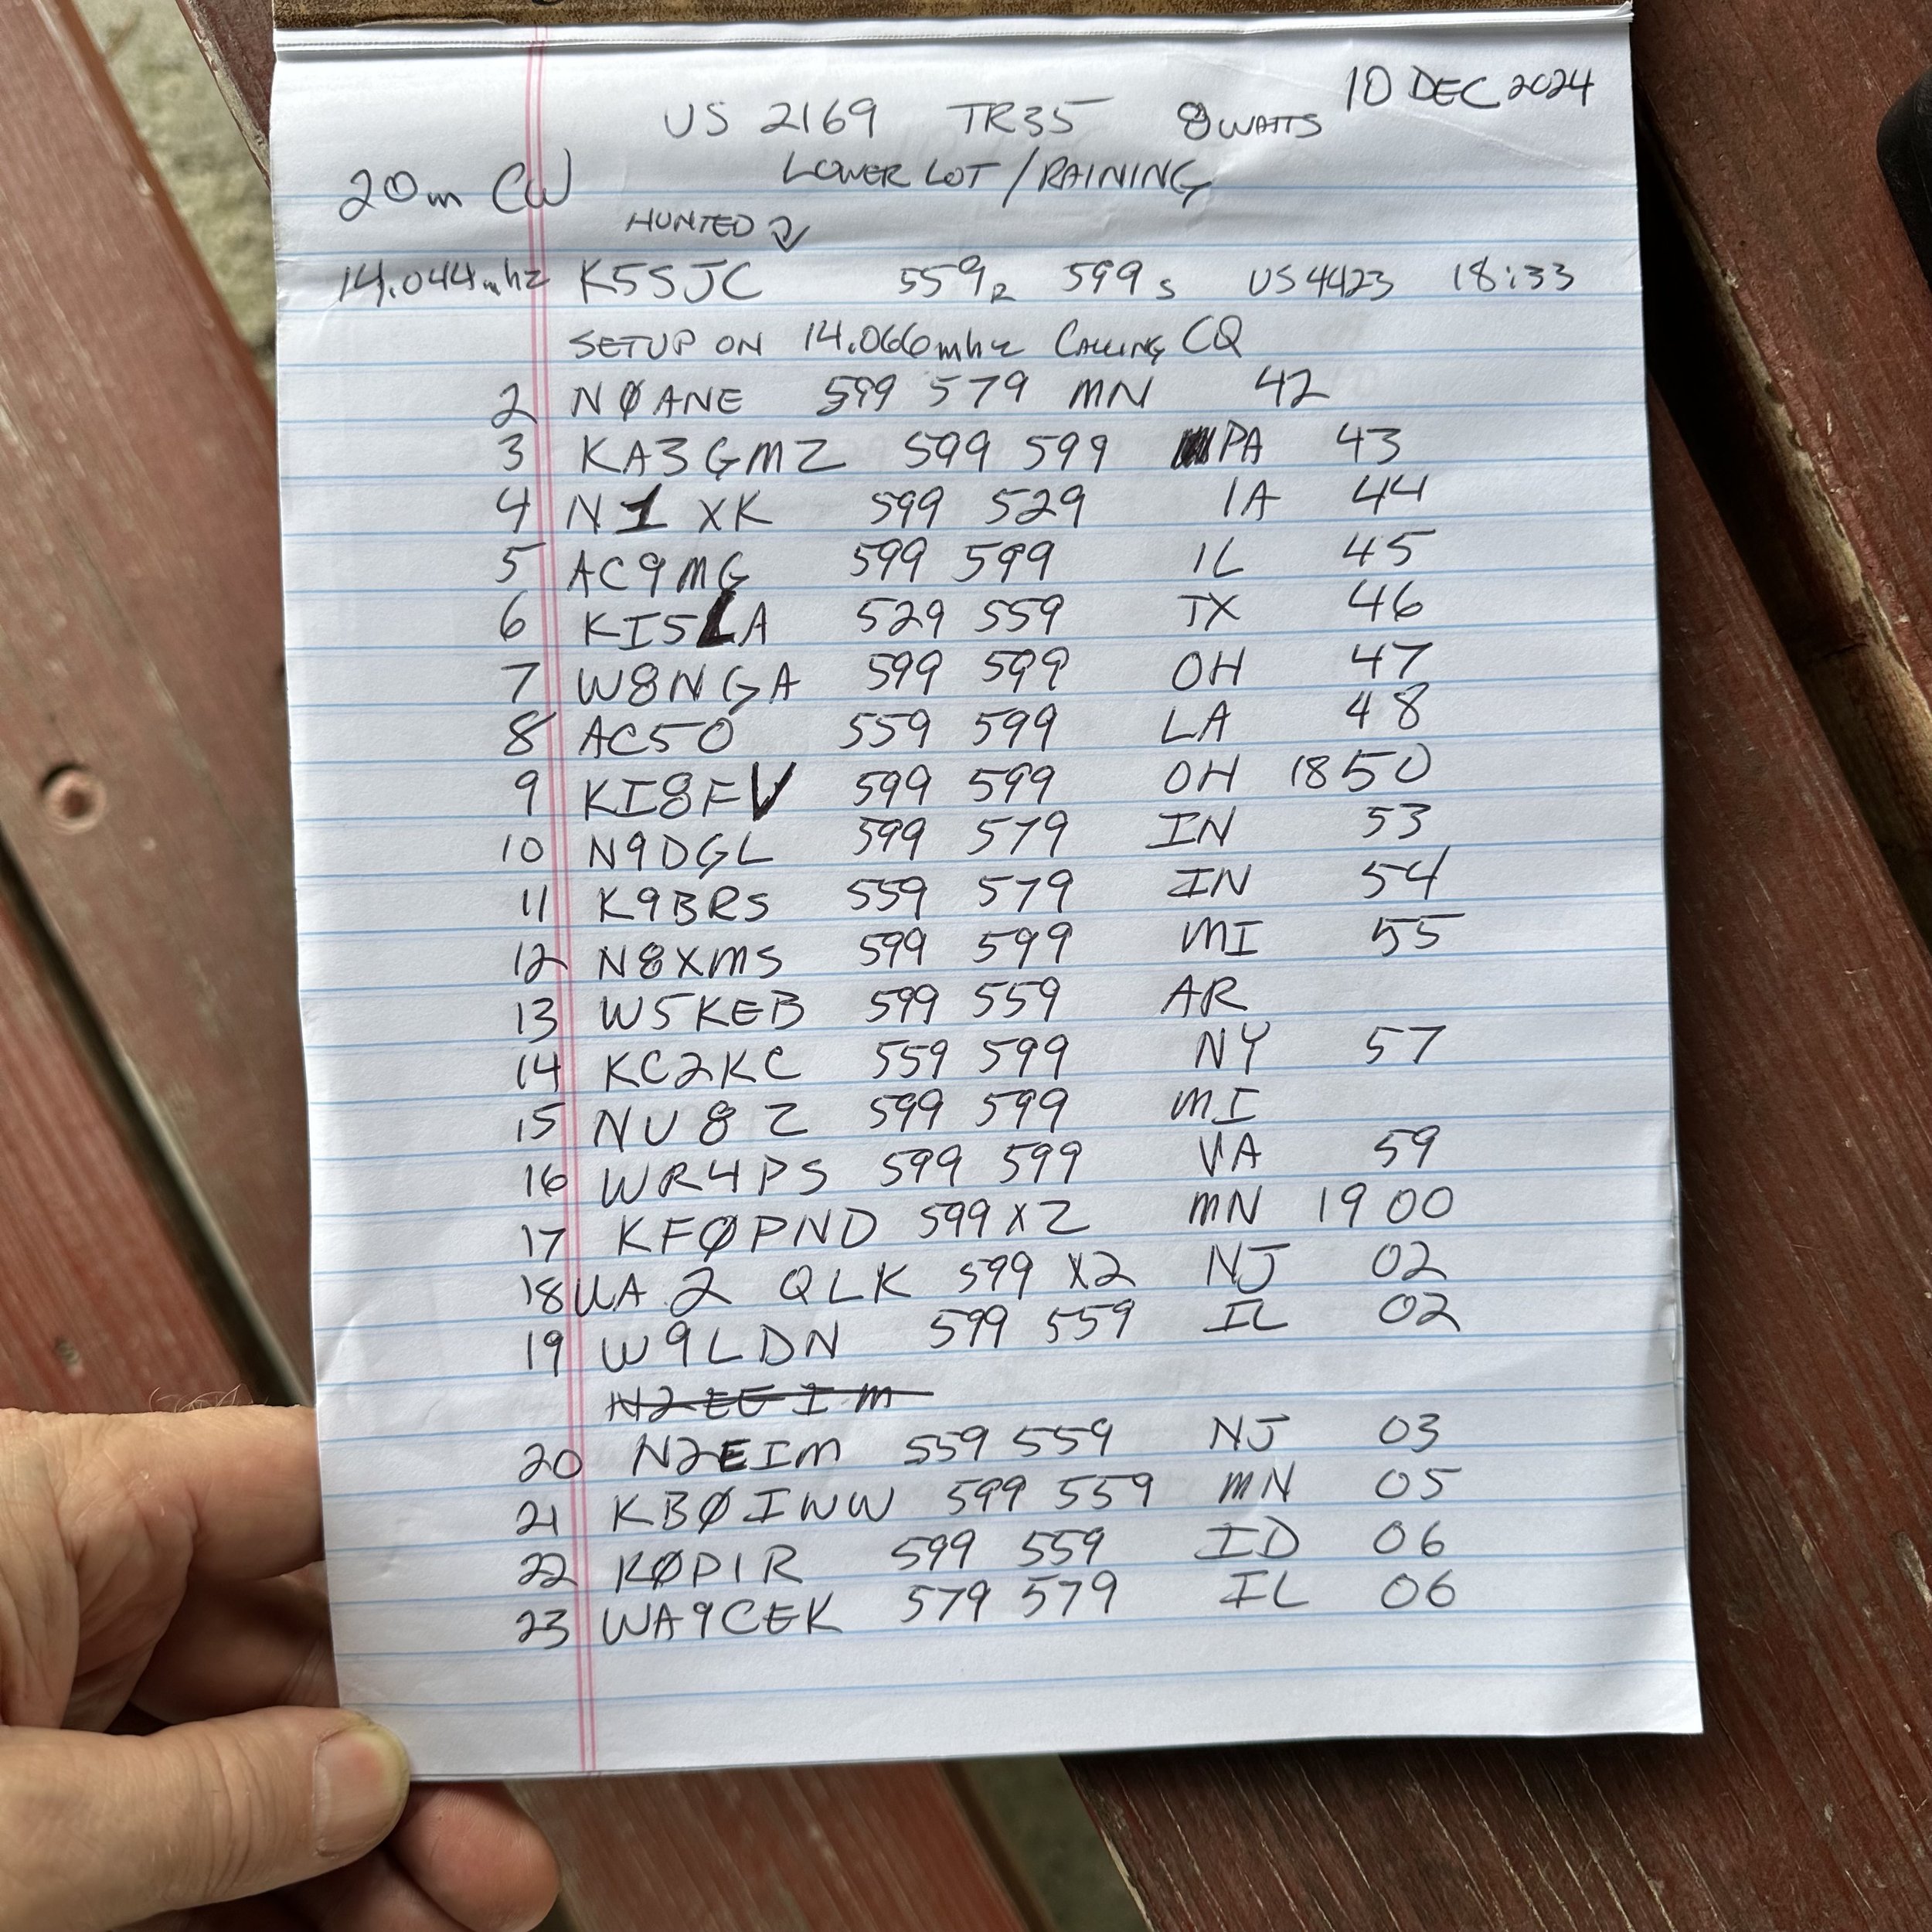 10 DEC 2024
US 2169 TR35 8 WATTS
20m CW LOWER LOT / RAINING
HUNTED
14.044mhz K5SJC 559R 599S US4423 18:33
SETUP ON 14.066mhz CALLING CQ
2 NØANE 599 579 MN 42
3 KA3GMZ 599 599 PA 43
4 N1XK 599 529 IA 44
5 AC9MG 599 599 IL 45
6 KI5LA 529 559 TX 46
7 W8NGA 599 599 OH 47
8 AC5O 559 599 LA 48
9 KI8FV 599 599 OH 1850
10 N9DGL 599 579 IN 53
11 K9BRS 559 579 IN 54
12 N8XMS 599 599 MI 55
13 W5KEB 599 559 AR
14 KC2KC 559 599 NY 57
15 NU8Z 599 599 MI
16 WR4PS 599 599 VA 59
17 KFØPND 599 X2 MN 1900
18 WA2QLK 599 X2 NJ 02
19 W9LDN 599 559 IL 02
20 N2EIM 559 559 NJ 03
21 KBØIWW 599 559 MN 05
22 KØPIR 599 559 ID 06
23 WA9CEK 579 579 IL 06